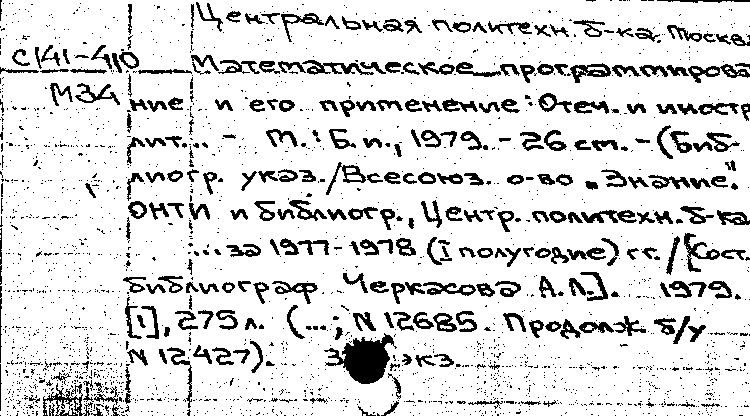 Центральная политехн. б-ка. Москва
С141-410
Математическое программирова
М34
ние и его применение: Отеч. и иностр
лит... - М.: Б. и., 1979. - 26 см. - (Биб-
лиогр. указ./Всесоюз. о-во „Знание".
ОНТИ и библиогр., Центр. политехн. б-ка
...за 1977-1978 (I полугодие) гг. / [Сост.
библиограф Черкасова А.Л.]. 1979.
[1], 275 л. (...; N 12685. Продолж. б/у
N 12427). 3 экз.